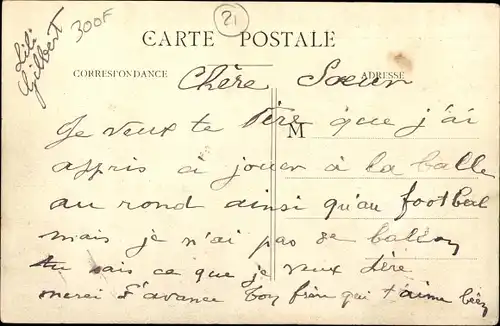 Lili
Gilbert
300F
21
CARTE POSTALE
CORRESPONDANCE
ADRESSE
Chère Soeur
M
Je veux te dire que j'ai
appris a jouer à la balle
au rond ainsi qu'au football
mais je n'ai pas de ballon
tu sais ce que je veux dire
merci d'avance Ton frère qui t'aime bien